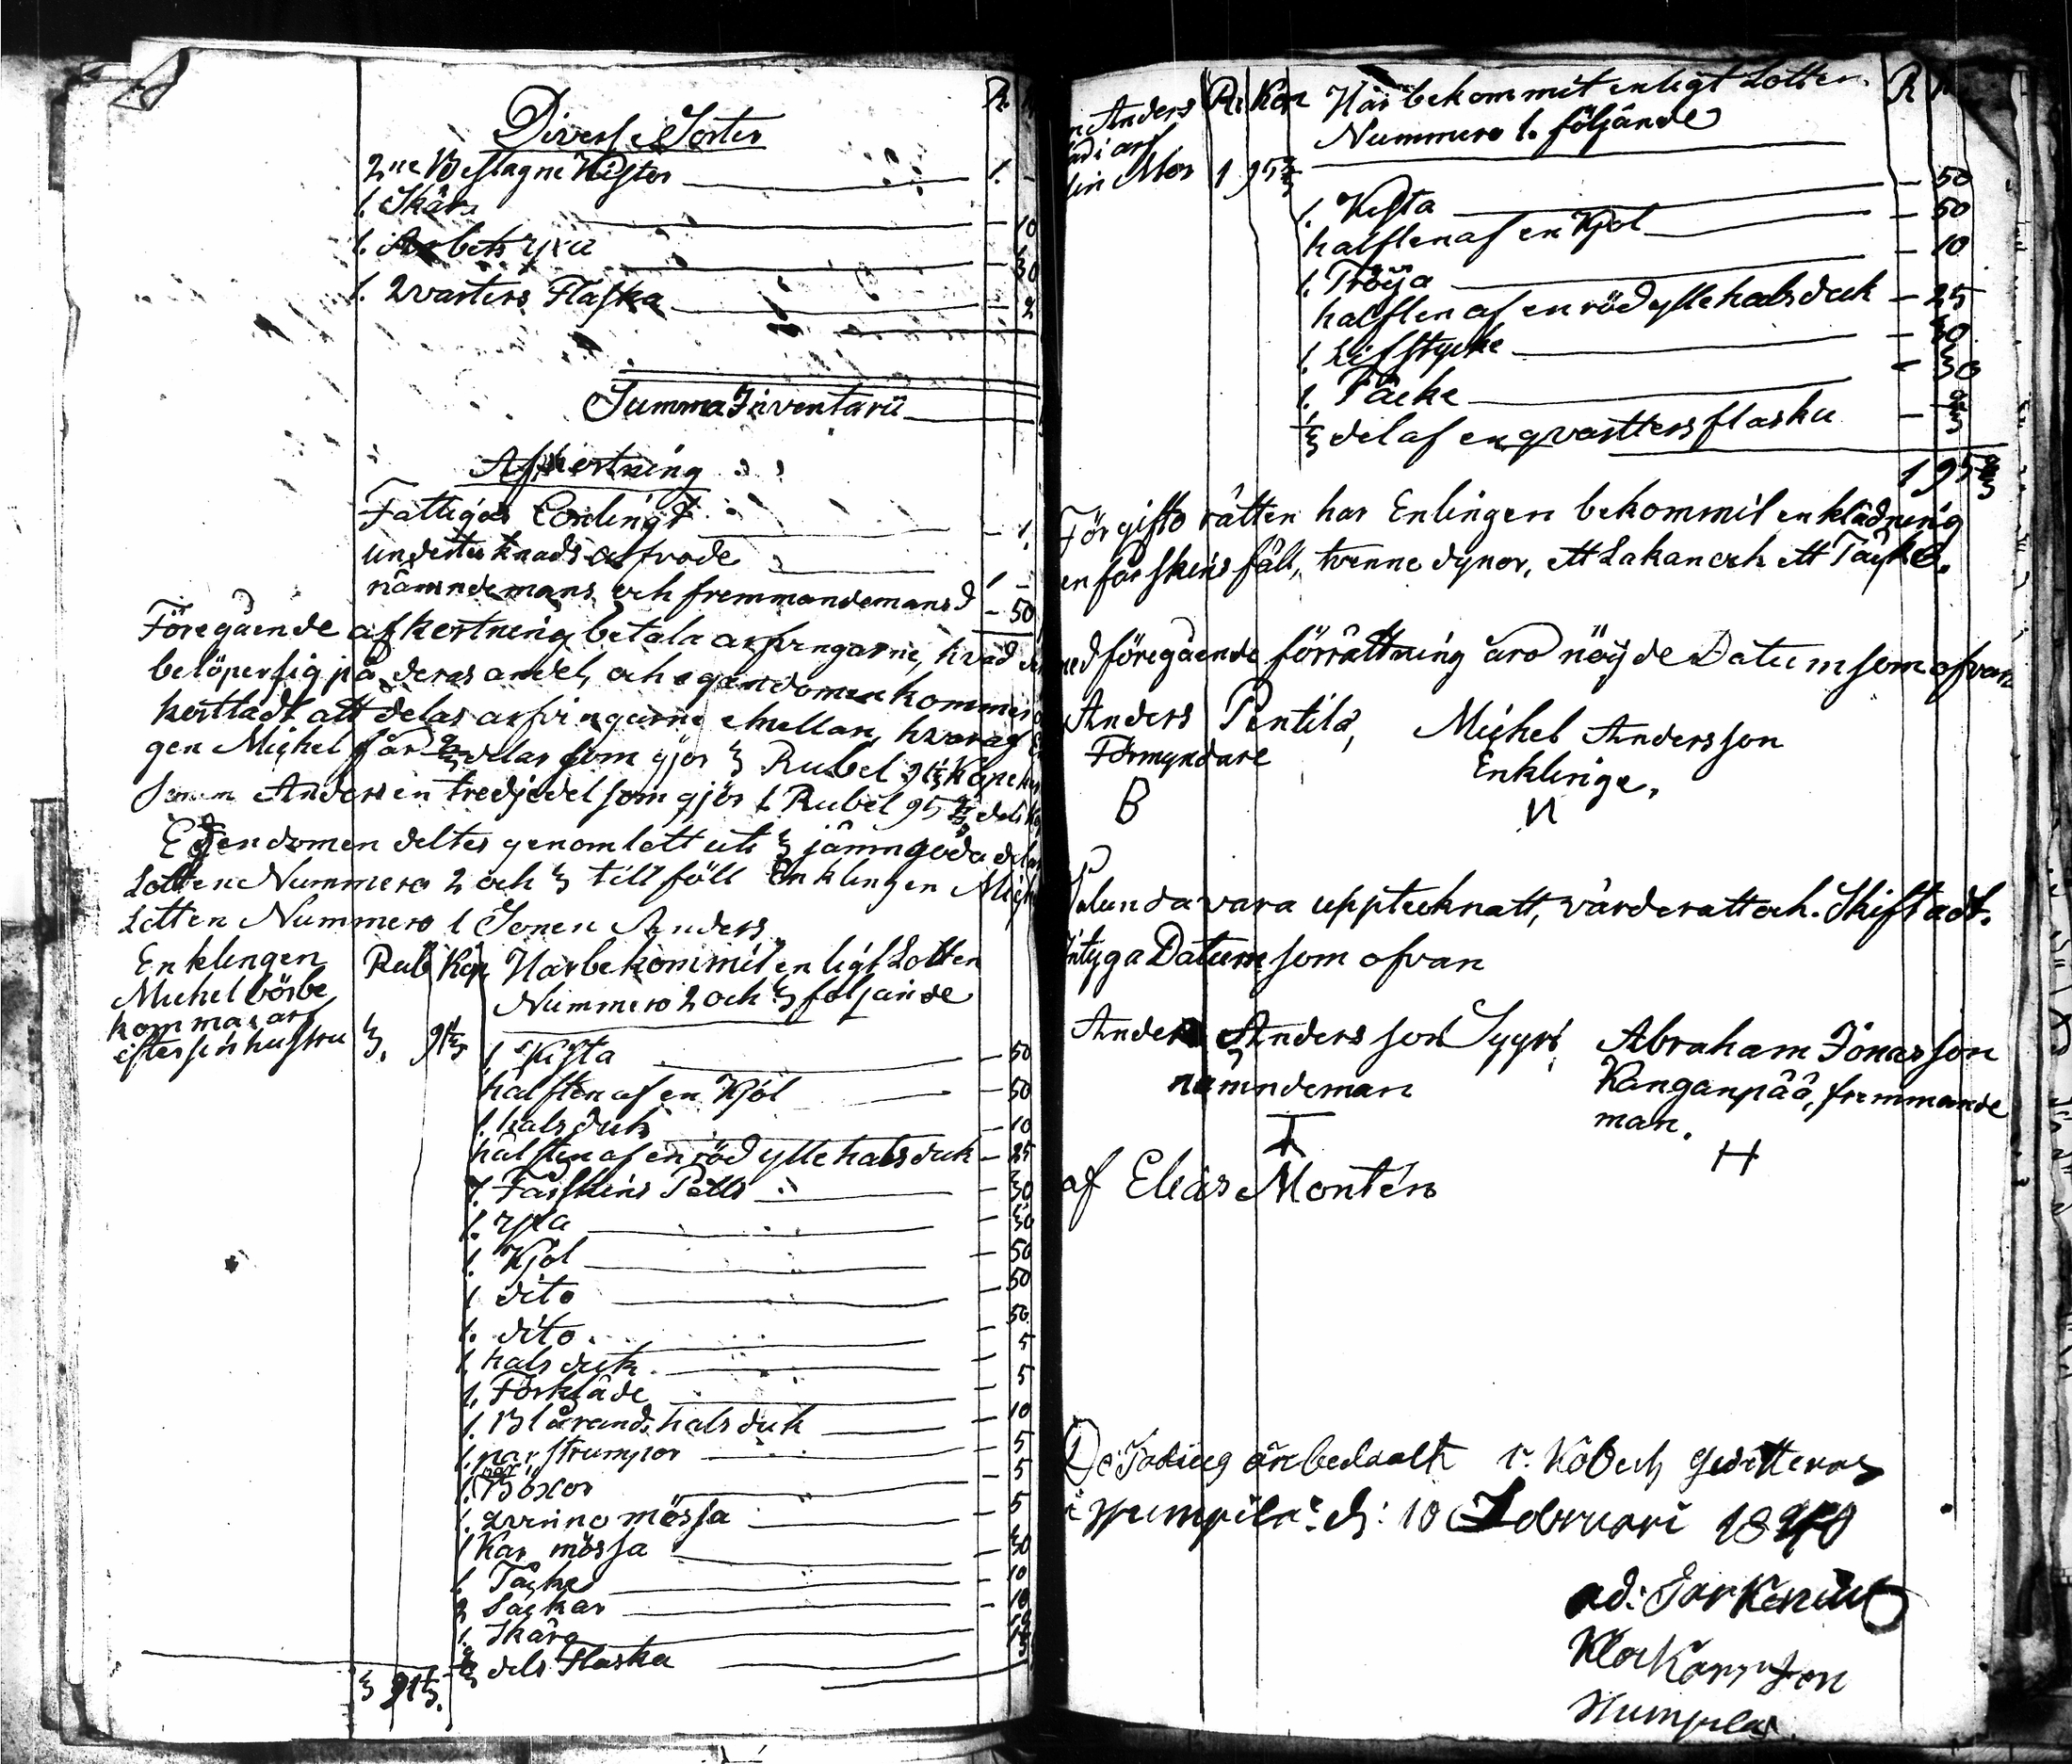 R.
Diverse Sorter
2ne Beslagne Kistor 1. -
1. Skära - 10
1. Arbets yxa - 30
1. Qvarters Flaska - 2
Summa Inventarii
Afkortning
Fattigas Ensling - 1.
undertecknads arfvode 1 -
nämndemans och fremmandemans d - 50
Föregående afkortning betala arfvingarne, hvad
belöper sig på deras andel, och egendomen kommer
att delas arfvingarne emellan, hvaraf
gen Michel får 2/3 delar som gjör 3 Rubel 91 1/3 Kopek
Sonen Anders en tredjedel som gjör 1 Rubel 95 2/3 dels
Egendomen deltes genom lott uti 3 jämngoda delar
Lotten Nummero 2 och 3 tillföll Enklingen Mich
Lotten Nummero 1 Sonen Anders
Enklingen Rub Kop Har bekommit enligt Lotten
Michel börbe Nummero 2 och 3 foljande
komma i arf
efter sin hustru 3. 91 1/3
1 Kista - 50
hälften af en Kjol - 50
1. halsduk - 10
hälften af en röd ylle halsduk - 25
1. Fårskins Pells - 30
1. yxa - 30
1. Kjol - 50
1 dito - 50
1. dito - 50
1. halsduk - 5
1. Förkläde - 5
1. Blårand. halsduk - 10
1. par strumpor - 5
1. par Böxor - 5
1. qvinno mössa - 5
1 Kar mössa - 30
1. Täcke - 10
2 Säckar - 10
1. Skära
2/3 dels Flaska
3 91 1/3.
n Anders R. Kop Har bekommit enligt Lotten R
ad i arf Nummero 1. följande
sin Mor 1 95 2/3
1. Kista - 50
halften af en Kjol - 50
1. Tröja - 10
halften af en röd ylle halsduk - 25
1. Lifstycke - 30
1. Täcke - 30
1/3 del af en qvartters flaska - 2/3
1 95 2/3
För gifto rätten har Enlingen bekommit en klädning
en fårskins fäll, trenne dynor, ett Lakan och ett Täcke.
med föregående förrättning äro nöyde Datum som ofvan
Anders Pentilä, Michel Andersson
Förmyndare Enklinge,
B N
Salunda vara upptecknatt, värderatt och Skiftadt.
Intyga Datum som ofvan
Anders Andersson Syyri, Abraham Jonasson
nämndeman Kanganpää, fremmande
man.
H
af Elias Montén
De Fattig är bedaalt 1. Kobeck
i Humpila d: 10 Februari 1840
Humpila